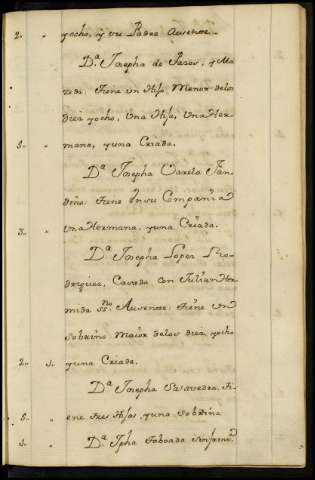 2. " yocho, y su Padre Ausente
D.ª Josepha de Pasos, y Ma
tiene un Hijo Menor delos
diez yocho, Una Hija, Una Her
5. " mana, yuna Criada.
D.ª Josepha Varela
tiene Ensu Compania
3. " Una Hermana, yuna Criada.
D.ª Josepha Lopez Ro
driguez, Casada con Julian Her
mida Ausente, tiene un
Sobrino Maior delos diez yocho
2. 1. yuna Criada.
D.ª Josepha Saavedra ti
5. " ene tres Hijas, yuna Sobrina
1. " D.ª Jpha Taboada